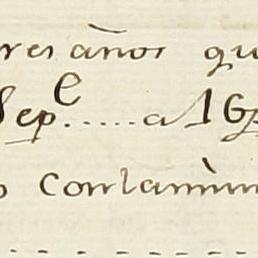 res años qu
Sep.e ..... a 16
o Contamin